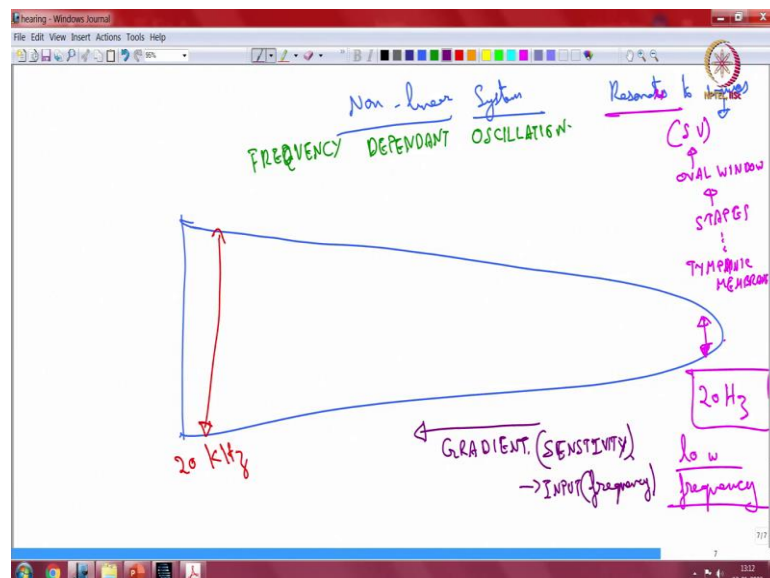 hearing - Windows Journal
File Edit View Insert Actions Tools Help
96%
B I
NPTEL
Non-linear System
Resonates to
FREQUENCY DEPENDANT OSCILLATION
(SV)
OVAL WINDOW
STAPES
TYMPANIC
MEMBRANE
20 kHz
20Hz
GRADIENT (SENSTIVITY)
→ INPUT (frequency)
low
frequency
7/7
7
13:12